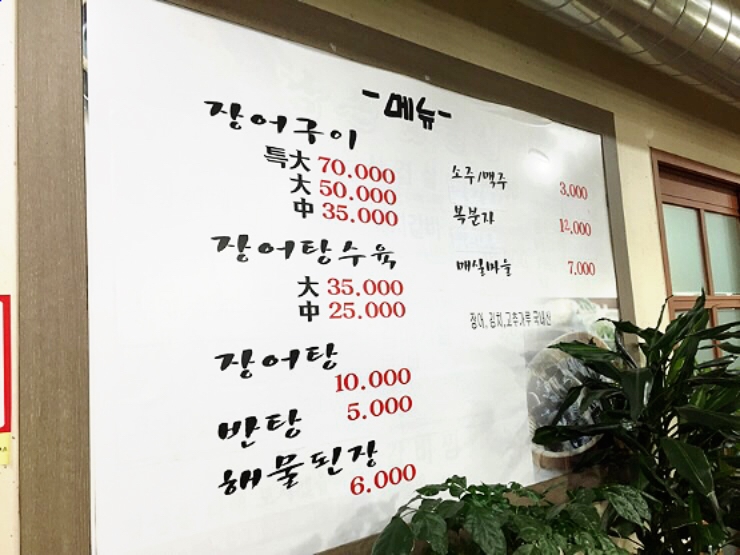 -메뉴-
장어구이
특大 70.000
大 50.000
中 35.000
장어탕수육
大 35.000
中 25.000
장어탕
10.000
반탕 5.000
해물된장
6.000
소주/맥주 3,000
복분자 12,000
매실마을 7,000
장어, 김치,고추가루 국내산